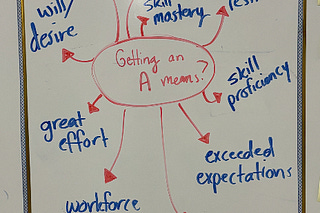 will/
desire
skill
mastery
Getting an
A means:?
skill
proficiency
great
effort
exceeded
expectations
workforce